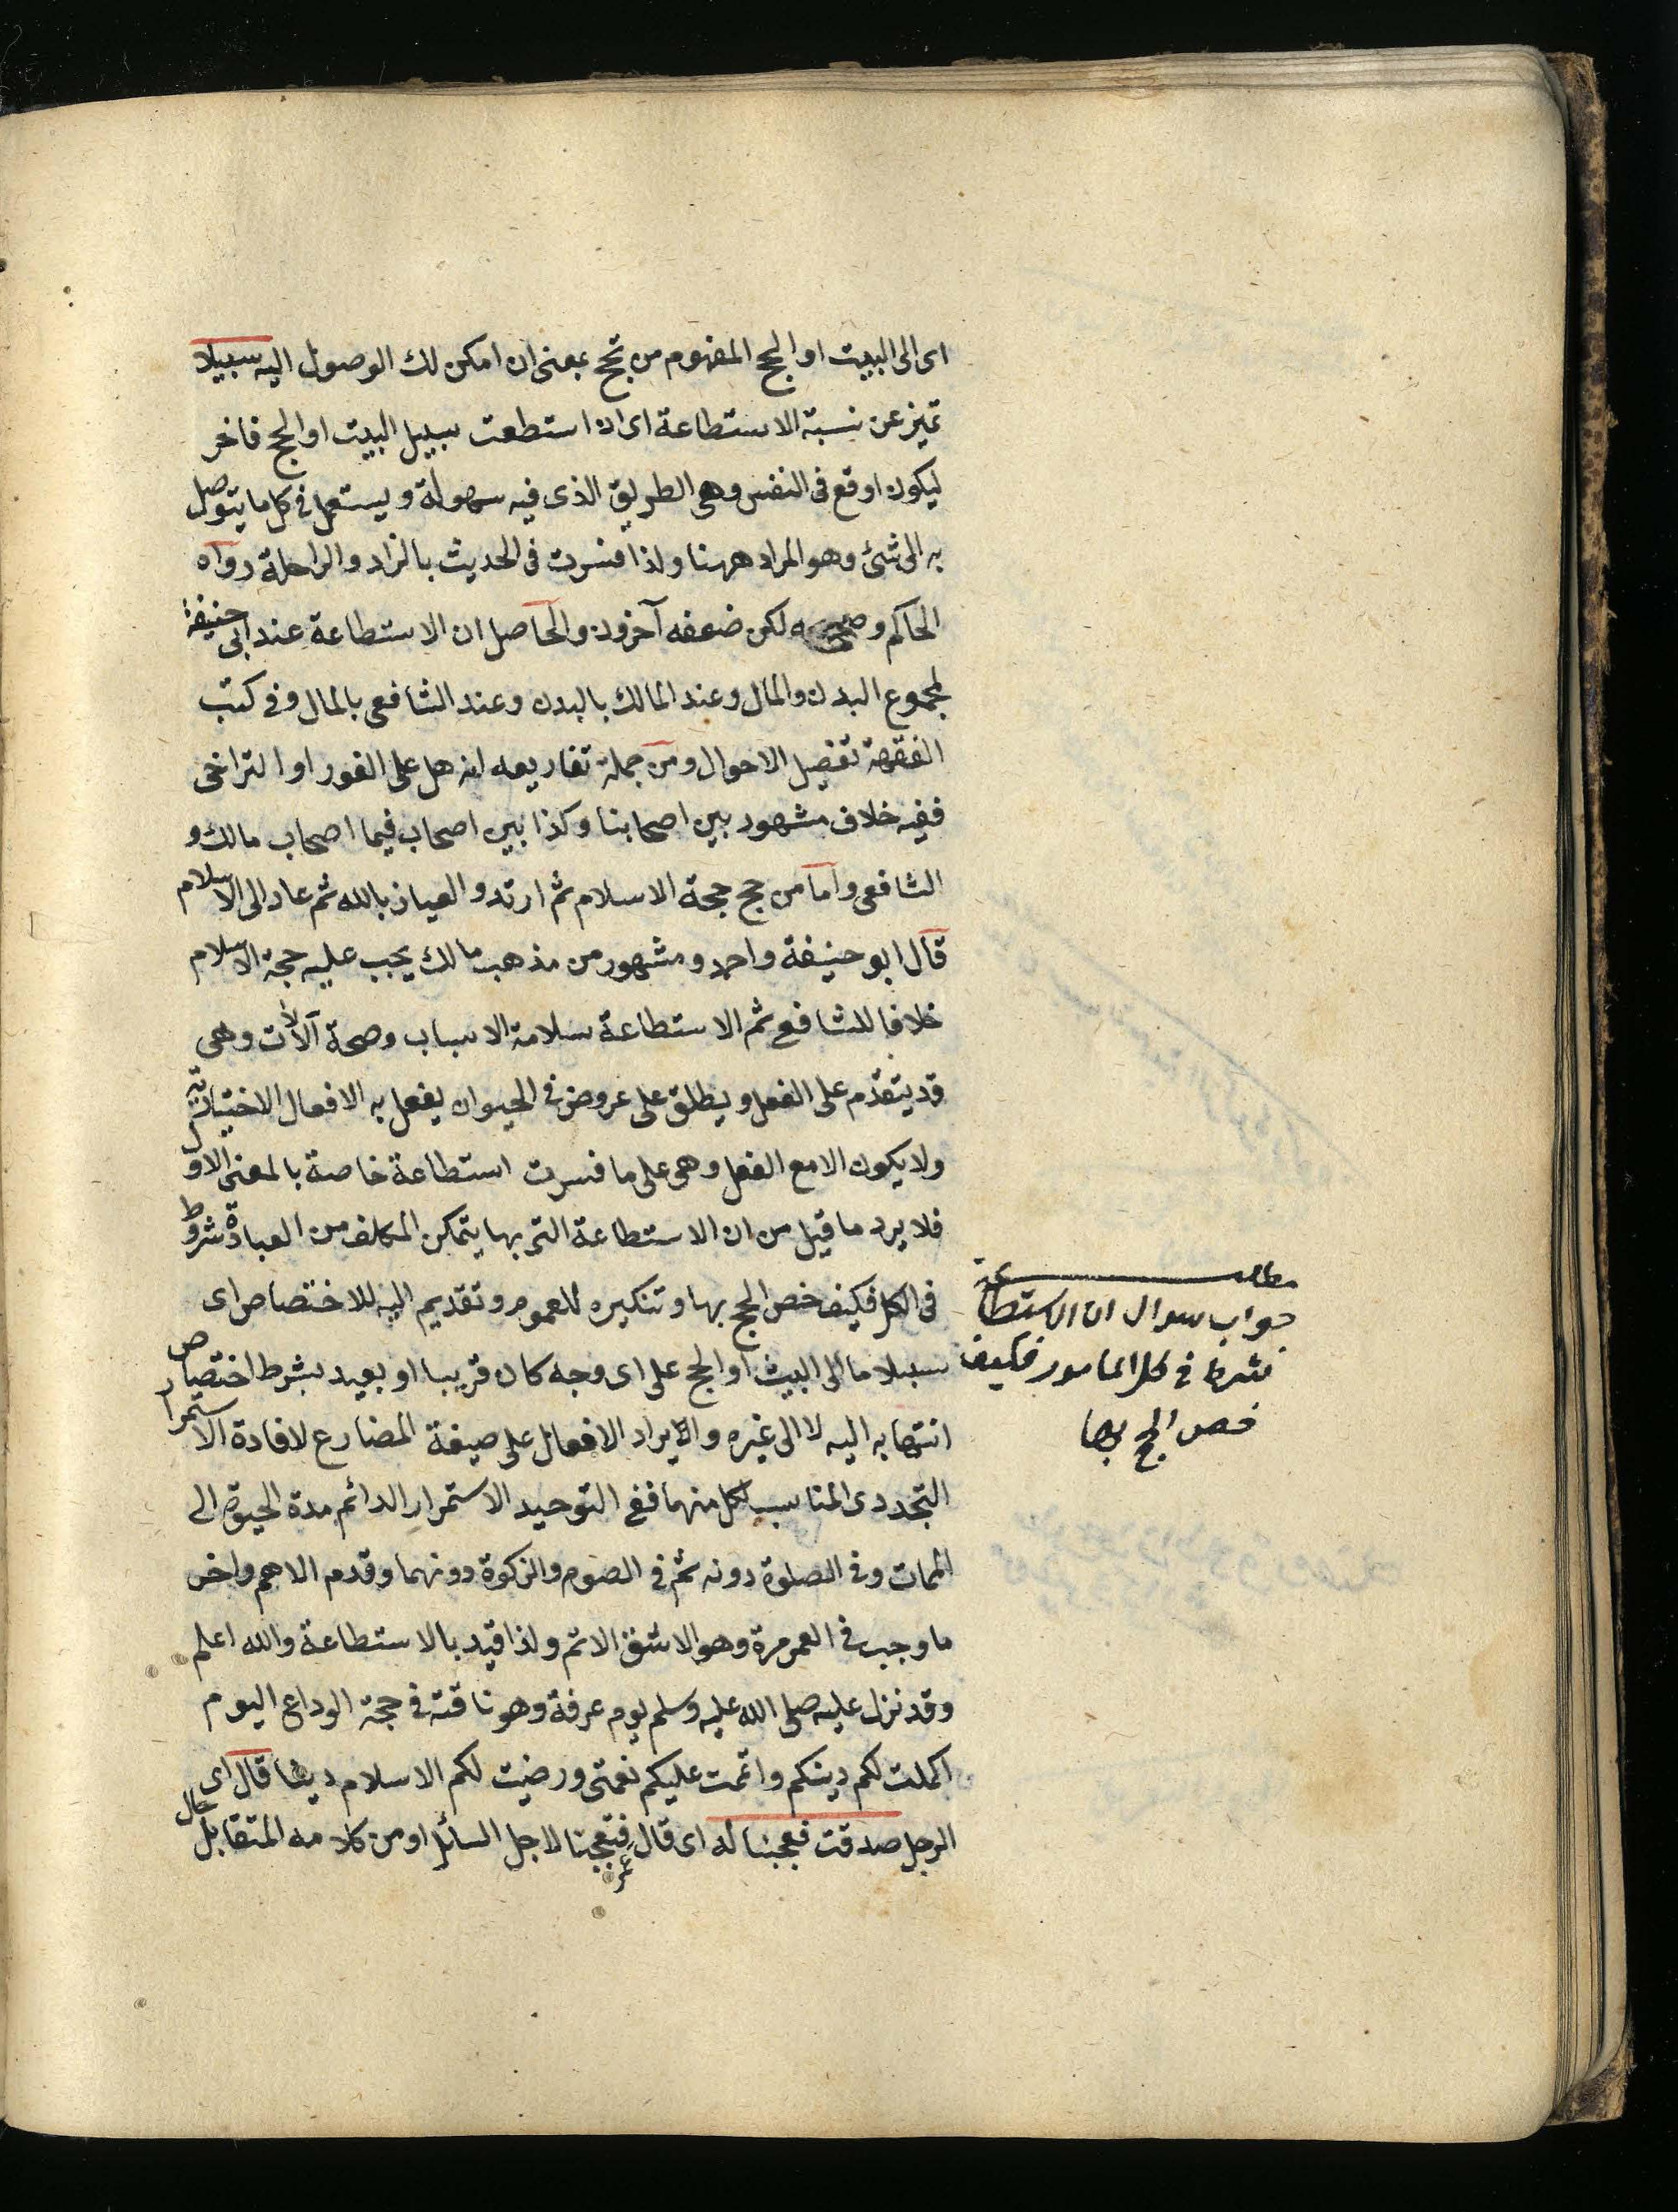 اى الى البيت او الحج المفهوم من تحج بمعنى ان امكن لك الوصول اليه سبيلا
تميز عن نسبة الاستطاعة اى ان استطعت سبيل البيت او الحج فاخر
ليكون اوقع فى النفس وهى الطريق الذى فيه سهولة ويستعمل فى كل ما يتوصل
به الى شئ وهو المراد ههنا ولذا فسرت فى الحديث بالزاد والراحلة رواه
الحاكم وصححه لكن ضعفه آخرون والحاصل ان الاستطاعة عند ابى حنيفة
بمجموع البدن والمال وعند المالك بالبدن وعند الشافعى بالمال وفى كتب
الفقهة تفصيل الاحوال ومن جملة تفاريعه انه هل على الفور او التراخى
ففيه خلاف مشهور بين اصحابنا وكذا بين اصحاب فيما اصحاب مالك و
الشافعى واما من حج حجة الاسلام ثم ارتد والعياذ بالله ثم عاد الى الاسلام
قال ابو حنيفة واحمد ومشهور من مذهب مالك يجب عليه حجة الاسلام
خلافا للشافعى ثم الاستطاعة سلامة الاسباب وصحة الآلات وهى
قد يتقدم على الفعل ويطلق على عروض فى الحيوان يفعل به الافعال الاختيارية
ولا يكون الا مع الفعل وهى على ما فسرت استطاعة خاصة بالمعنى الاول
فلا يرد ما قيل من ان الاستطاعة التى بها يتمكن المكلف من العبادة شروط
فى الكل فكيف خص الحج بها وتنكيره للعموم وتقديم اليه للاختصاص اى
سبيلا ما الى البيت او الحج على اى وجه كان قريبا او بعيد بشرط اختصاص
انتهابه اليه لا الى غيره والايراد الافعال على صيغة المضارع لافادة الاستمرار
التجددى المناسب لكل منهما ففى التوحيد الاستمرار الدائم مدة الحيوة الى
الممات وفى الصلوة دونه ثم فى الصوم والزكوة دونهما وقدم الاهم واخر
ما وجب فى العمر مرة وهو الاشق الاتم ولذا قيد بالاستطاعة والله اعلم
وقد نزل عليه صلى الله عليه وسلم يوم عرفة وهو ناقته فى حجة الوداع اليوم
اكملت لكم دينكم واتممت عليكم نعمتى ورضيت لكم الاسلام دينا قال اى
الرجل صدقت فعجبنا له اى قال عمر فتعجبنا لاجل السائل او من كلامه المتقابل حال
مطلب
جواب سوال ان الاستطاعة
شرط فى كل المامور فكيف
خص الحج بها